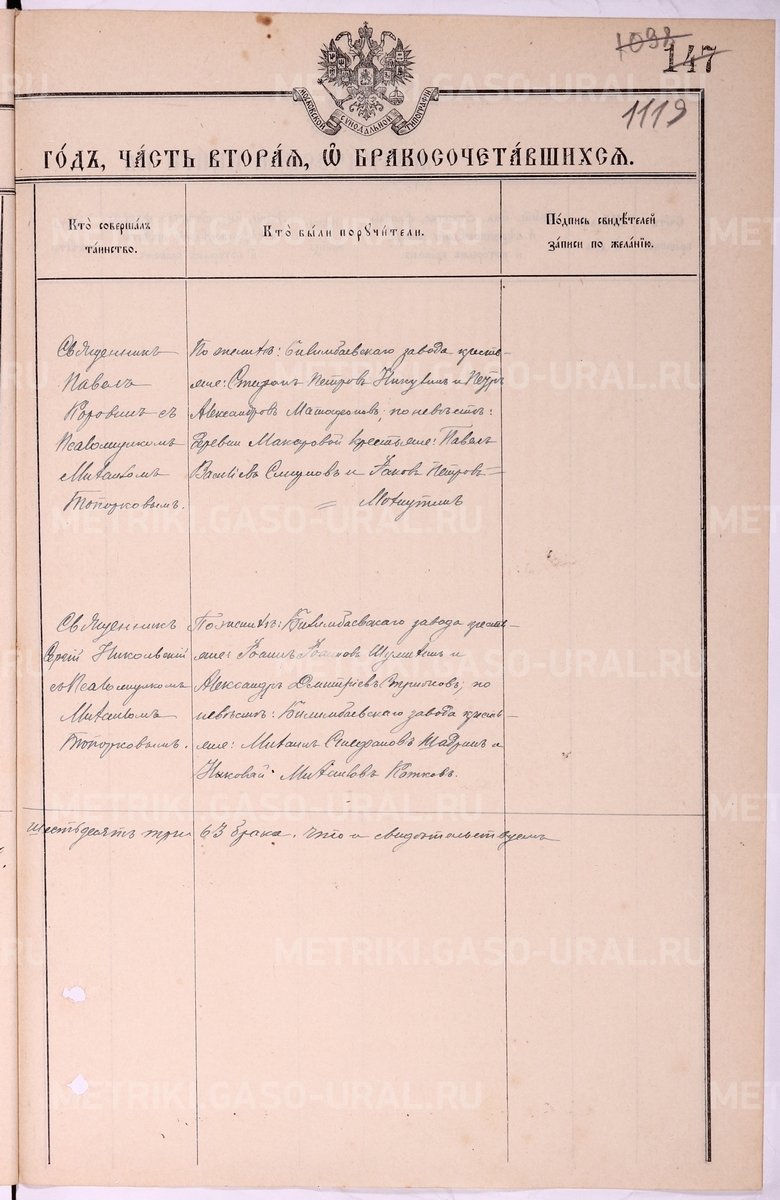 1098
147
1119
МОСКОВСКОЙ СѴНОДАЛЬНОЙ ТИПОГРАФІИ
ГО́ДЪ, ЧА́СТЬ ВТОРА́Я, Ѽ БРАКОСОЧЕТА́ВШИХСЯ.
Кто̀ соверша́лъ
та́инство.
Кто̀ бы́ли поручи́тели.
По́дпись свидѣ́телей
за́писи по жела́нію.
Священникъ
Павелъ
Коровинъ съ
Псаломщикомъ
Михаиломъ
Топорковымъ.
По женихѣ: Билимбаевскаго завода кресть-
яне: Петровъ и Петръ
Александровъ по невѣстѣ:
деревни Макаровой крестьяне: Павелъ
Васильевъ и Яковъ Петровъ
Священникъ
Сергій Никольскій
съ Псаломщикомъ
Михаиломъ
Топорковымъ.
По женихѣ: Билимбаевскаго завода кресть-
яне: Іоаннъ Іоанновъ и
Александръ Дмитріевъ по
невѣстѣ: Билимбаевскаго завода кресть-
яне: Михаилъ Стефановъ Шадринъ и
Николай Михаиловъ Котковъ.
Шестьдесятъ три 63 брака. Что и свидѣтельствуемъ
METRIKI.GASO-URAL.RU